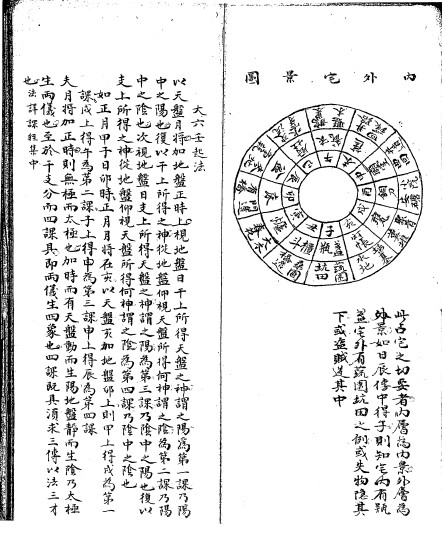 內外宅景圖
子
丑
卯
巳
午
未
申
酉
瓶
盆
蔬園
坑田
此占宅之切要者內層為內景外層為
外景如日辰傳中得子則知宅內有瓶
盆宅外有蔬園坑田之創或失物隱其
下或盗賊逃其中
大六壬起法
以天盤月將加地盤正時上視地盤日干上所得天盤之神謂之陽為第一課乃陽
中之陽也復以干上所得之神從地盤仰視天盤所得何神謂之陰為第二課乃陽
中之陰也次視地盤日支上所得天盤之神謂之陽為第三課乃陰中之陽也復以
支上所得之神從地盤仰視天盤所得何神謂之陰為第四課乃陰中之陰也
如正月甲子日卯時正月月將在亥以天盤亥加地盤卯上則甲上得戌為第一
課戌上得午為第二課子上得申為第三課申上得辰為第四課
夫月將加正時則無極而太極也加時而有天盤動而生陽地盤靜而生陰乃太極
生兩儀也至於干支分而四課具即兩儀生四象也四課既具須求三傳以法三才
也法詳課經集中